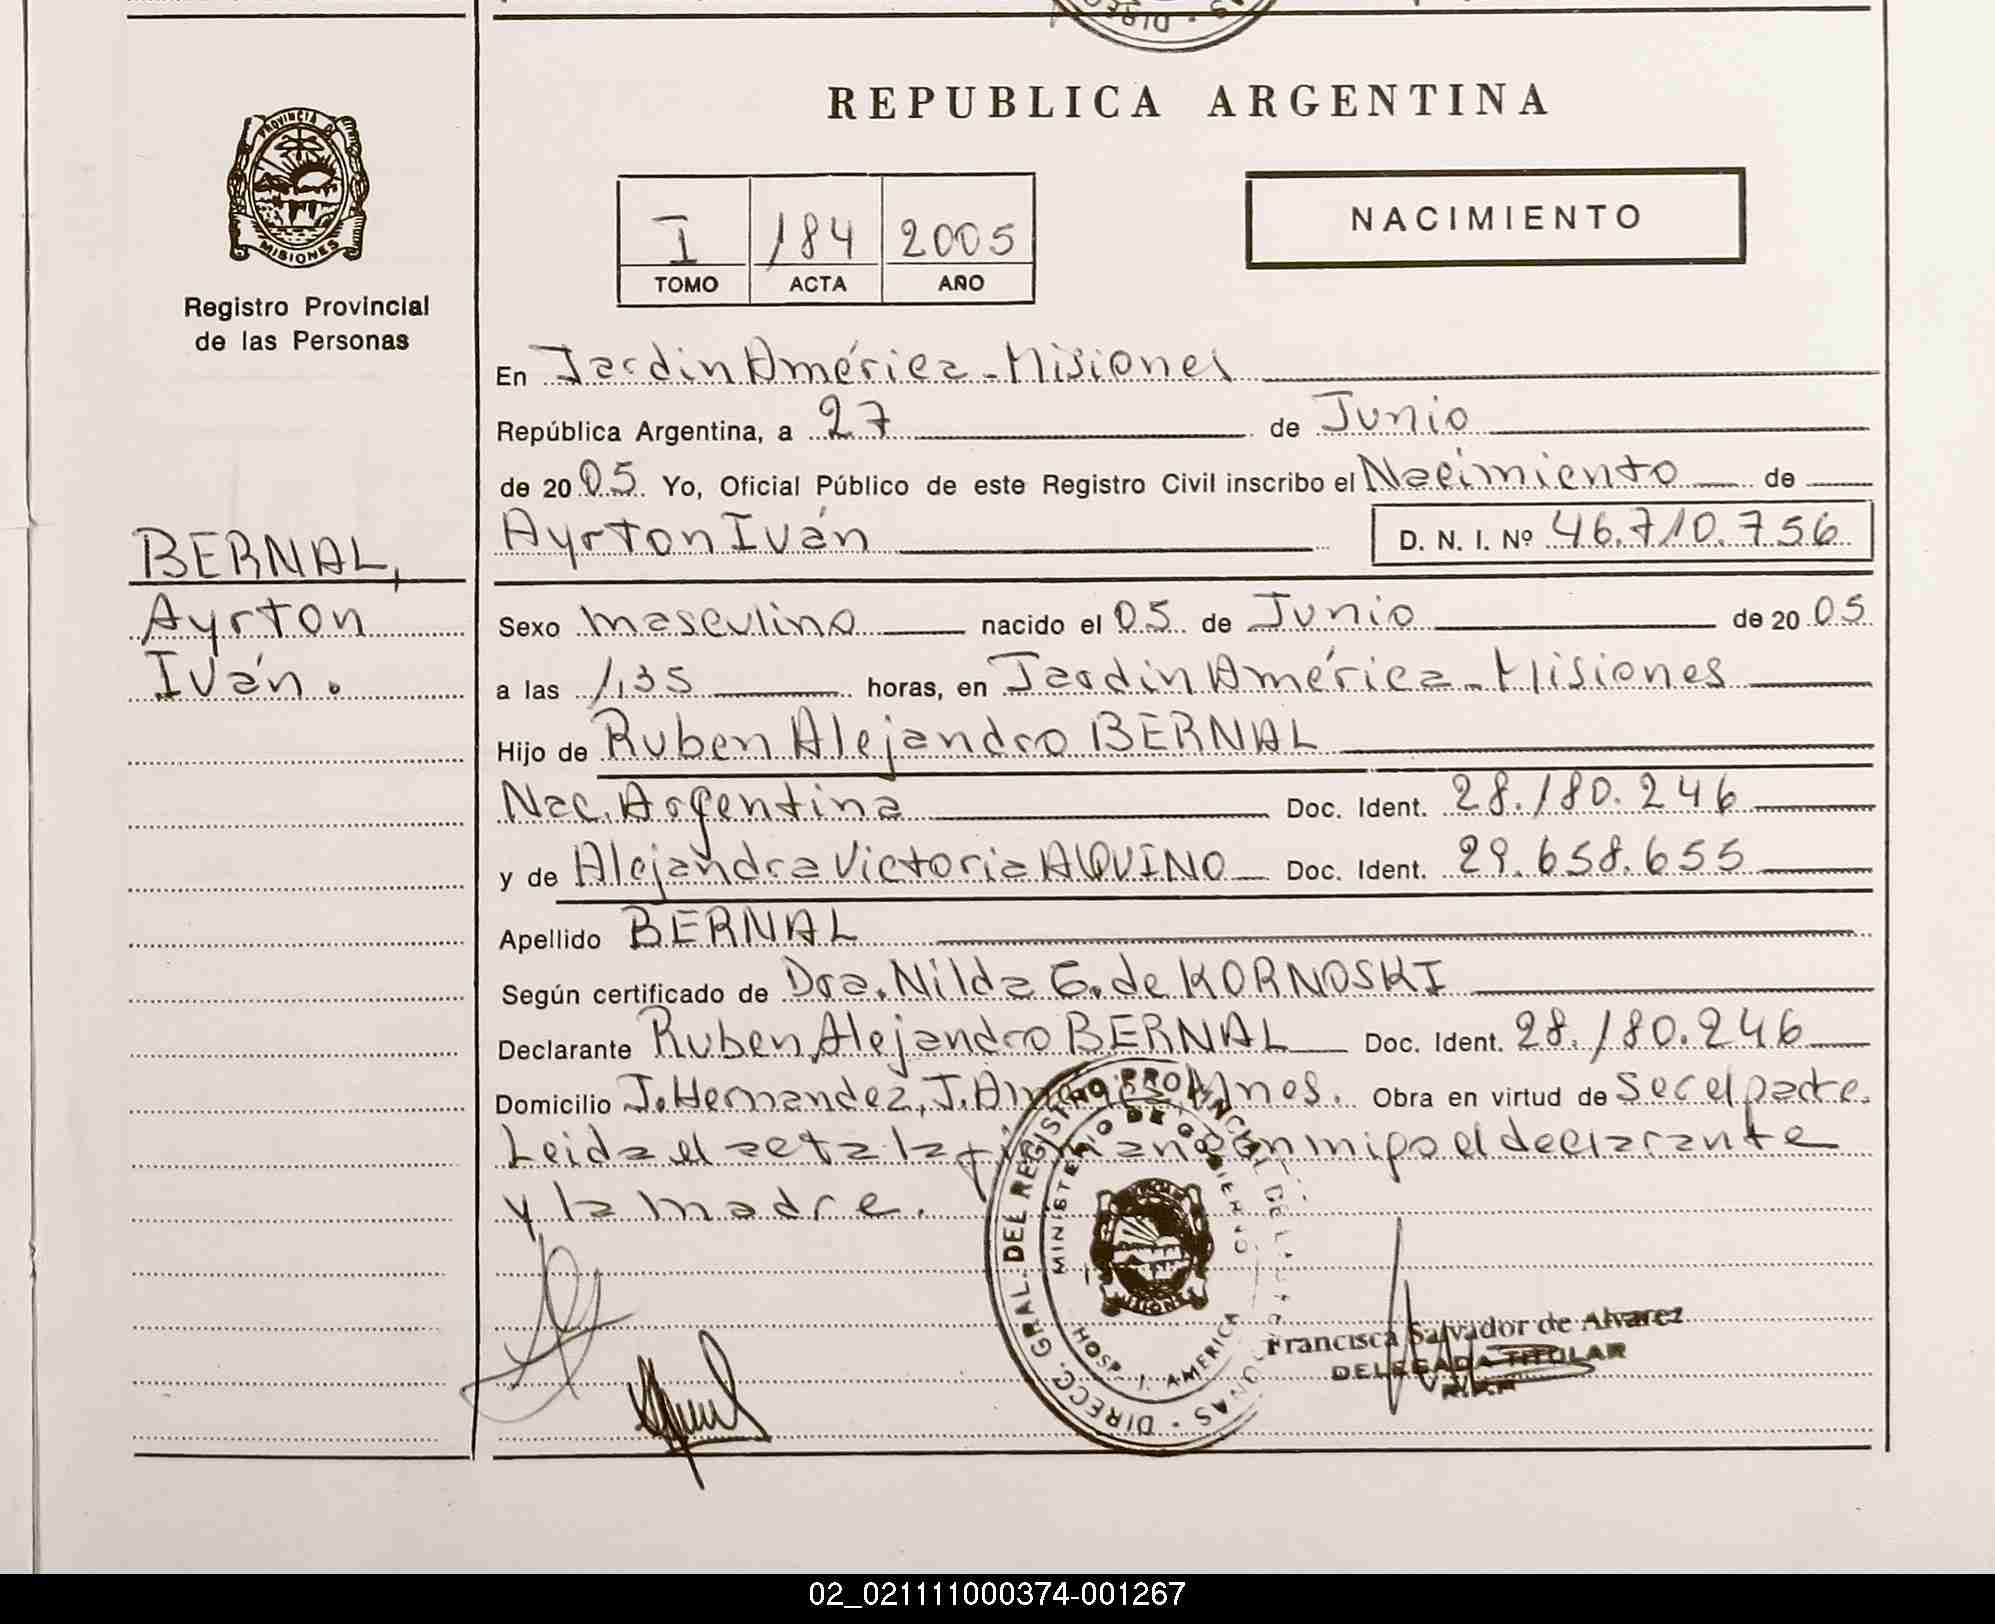 REPUBLICA ARGENTINA
PROVINCIA DE
MISIONES
Registro Provincial
de las Personas
I 184 2005
TOMO ACTA AÑO
NACIMIENTO
En Jardin América - Misiones
República Argentina, a 27 de Junio
de 2005. Yo, Oficial Público de este Registro Civil inscribo el Nacimiento de
Ayrton Iván D. N. I. Nº 46.710.756
BERNAL,
Ayrton
Iván.
Sexo masculino nacido el 05 de Junio de 2005
a las 1,35 horas, en Jardin América - Misiones
Hijo de Ruben Alejandro BERNAL
Nac. Argentina Doc. Ident. 28.180.246
y de Alejandra Victoria AQUINO Doc. Ident. 29.658.655
Apellido BERNAL
Según certificado de Dra. Nilda G. de KORNOSKI
Declarante Ruben Alejandro BERNAL Doc. Ident. 28.180.246
Domicilio J. Hernandez, J. América Mnes. Obra en virtud de ser el padre.
Leida el acta la firman con migo el declarante
y la madre.
DIRECC. GRAL. DEL REGISTRO PROVINCIAL DE LAS PERSONAS
MINISTERIO DE GOBIERNO
HOSP. J. AMERICA
MISIONES
Francisca Salvador de Alvarez
DELEGADA TITULAR
02_021111000374-001267